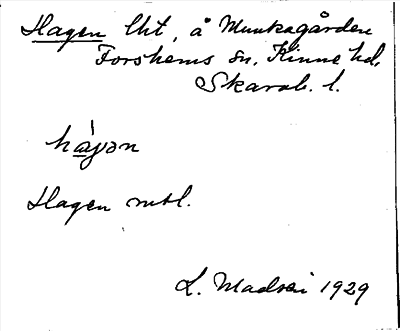 Hagen lht, å Munkagården
Forshems sn, Kinne hd,
Skarab. l.
hàgən
Hagen mbl.
L. Madsen 1929